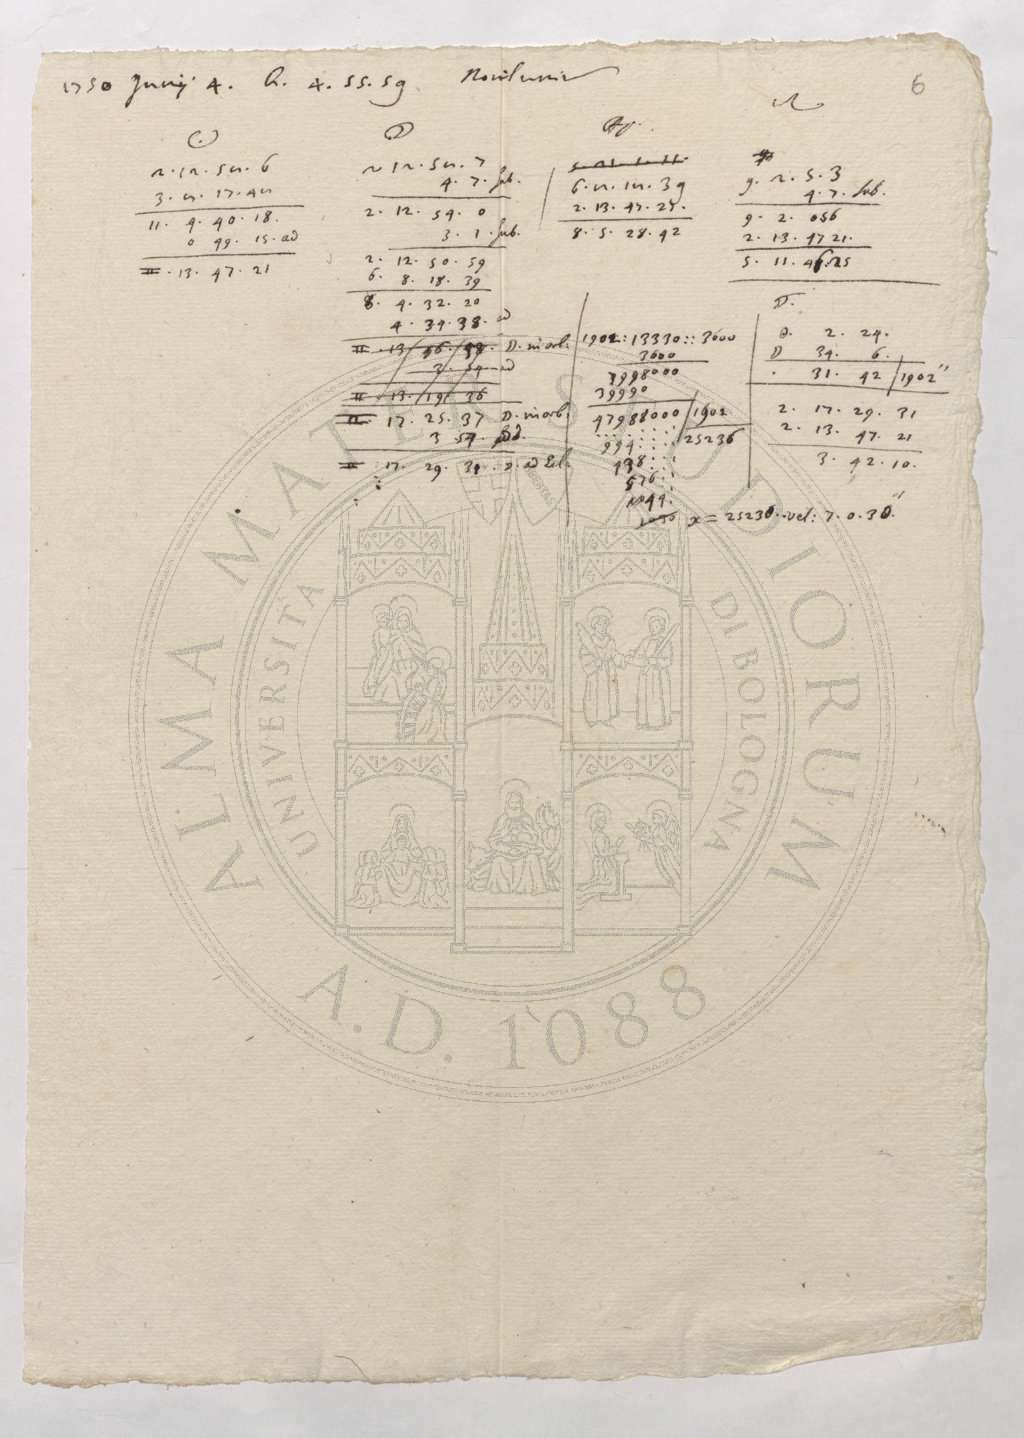 1750 Junij 4. h. 4. 55. 59 Novilunium
6
☉
2. 12. 58. 6
3. 8. 17. 48
11. 4. 40. 18.
0 49. 15. ad
II. 13. 47. 21
☽
2 12. 58. 7
4. 7. sub.
2. 12. 54. 0
3. 1. sub.
2. 12. 50. 59
6. 8. 18. 39
8. 4. 32. 20
4. 34. 38. ad
3. 54 ad
II 17. 25. 37 D. in orb.
3 54. ad.
II 17. 29. 31. D. ad Ecl.
Ap.
6. 8. 18. 39
2. 13. 47. 21.
8. 5. 28. 42
☊
9. 2. 5. 3
4. 7. sub.
9. 2. 056
2. 13. 47 21.
5. 11. 46. 25
1902 : 13330 :: 3600
3600
7998000
39990
47988000 / 1902
25236
994
438
576
x = 25230. vel: 7. 0. 30."
D.
☉. 2. 24.
D 34. 6.
31. 42 / 1902"
2. 17. 29. 31
2. 13. 47. 21
3. 42. 10.
ALMA MATER STUDIORUM
UNIVERSITA DI BOLOGNA
A.D. 1088